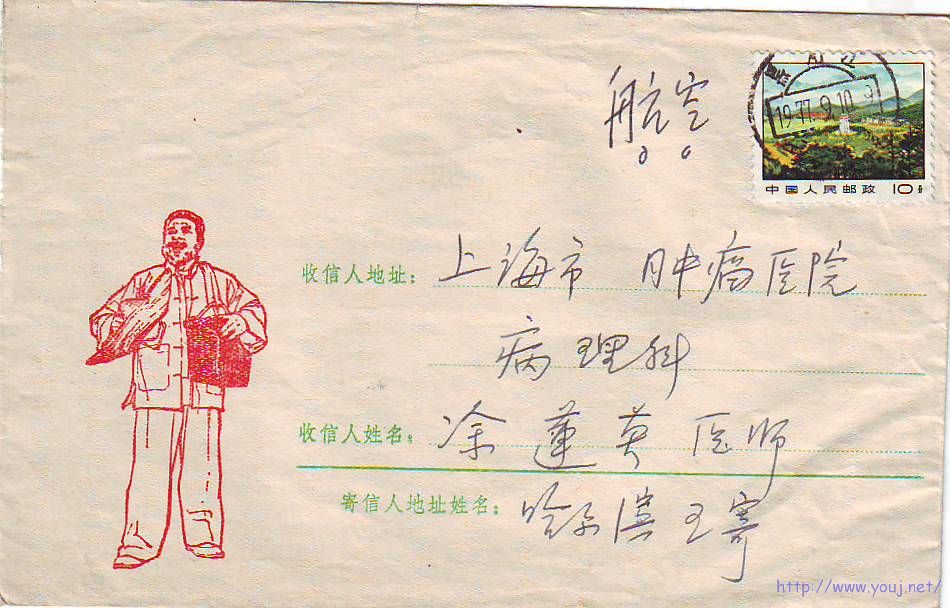 航空
1977.9.10.9
中国人民邮政 10分
收信人地址：上海市 肿瘤医院
病理科
收信人姓名：涂莲英 医师
寄信人地址姓名：哈尔滨王寄
http://www.youj.net/